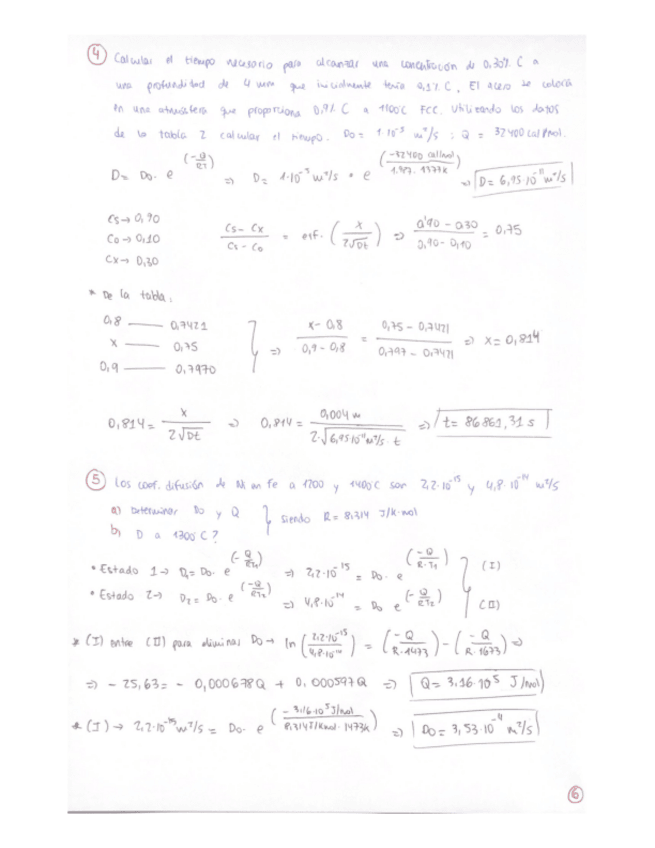 ④ Calcular el tiempo necesario para alcanzar una concentración de 0,30% C a
una profundidad de 4 mm que inicialmente tenía 0,1% C. El acero se coloca
en una atmósfera que proporciona 0,9% C a 1100°C FCC. Utilizando los datos
de la tabla 2 calcular el tiempo. Do = 1·10⁻⁵ m²/s ; Q = 32400 cal/mol.
D = Do · e^(-Q/RT) ⇒ D = 1·10⁻⁵ m²/s · e^(-32400 cal/mol / 1.987 · 1373K) ⇒ D = 6,95·10⁻¹¹ m²/s
Cs → 0,90
Co → 0,10
Cx → 0,30
Cs - Cx / Cs - Co = erf. (x / 2√Dt) ⇒ 0'90 - 0,30 / 0,90 - 0,10 = 0,75
* De la tabla:
0,8 —— 0,7421
x —— 0,75
0,9 —— 0,7970
} ⇒ x - 0,8 / 0,9 - 0,8 = 0,75 - 0,7421 / 0,797 - 0,7421 ⇒ x = 0,814
0,814 = x / 2√Dt ⇒ 0,814 = 0,004 m / 2·√6,95·10⁻¹¹ m²/s · t ⇒ t = 86861,31 s
⑤ Los coef. difusión de Ni en Fe a 1200 y 1400°C son 2,2·10⁻¹⁵ y 4,8·10⁻¹⁴ m²/s
a) Determinar Do y Q
b) D a 1300°C?
} siendo R = 8,314 J/K·mol
• Estado 1 → D₁ = Do · e^(-Q/RT₁) ⇒ 2,2·10⁻¹⁵ = Do · e^(-Q/R·T₁) (I)
• Estado 2 → D₂ = Do · e^(-Q/RT₂) ⇒ 4,8·10⁻¹⁴ = Do e^(-Q/RT₂) (II)
* (I) entre (II) para eliminar Do → ln (2,2·10⁻¹⁵ / 4,8·10⁻¹⁴) = (-Q / R·1473) - (-Q / R·1673) ⇒
⇒ - 25,63 = - 0,000678Q + 0,000597Q ⇒ Q = 3,16·10⁵ J/mol
* (I) → 2,2·10⁻¹⁵ m²/s = Do · e^(-3,16·10⁵ J/mol / 8,314 J/Kmol · 1473K) ⇒ Do = 3,53·10⁻⁴ m²/s
⑥